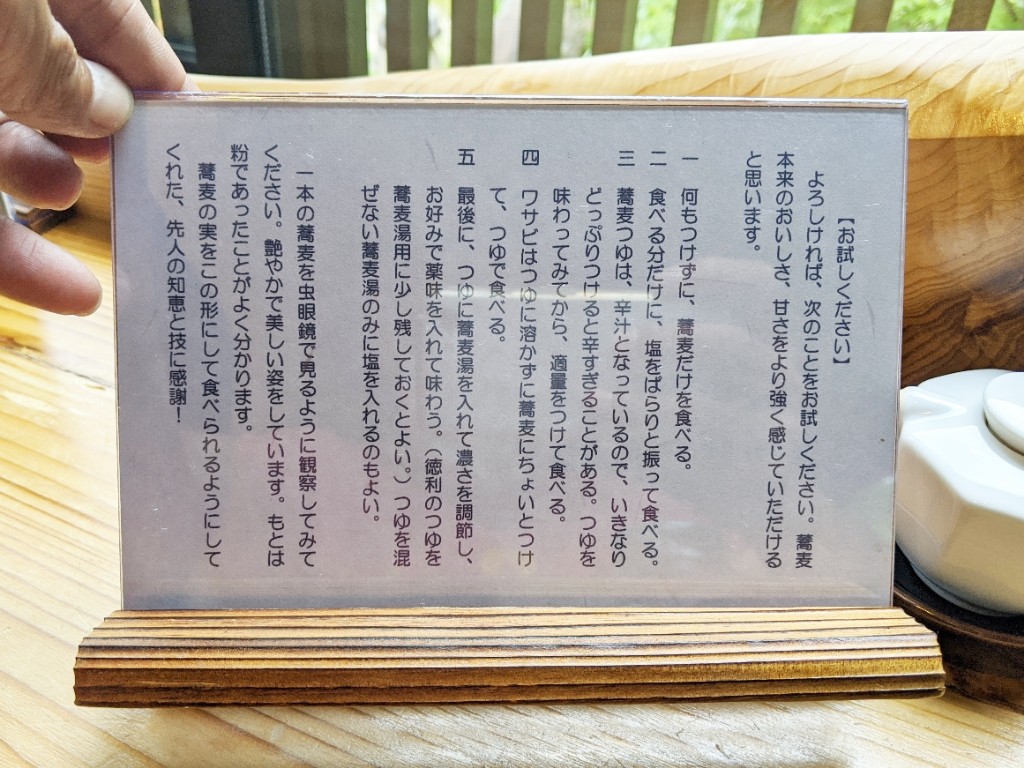 【お試しください】
よろしければ、次のことをお試しください。蕎麦
本来のおいしさ、甘さをより強く感じていただける
と思います。
一 何もつけずに、蕎麦だけを食べる。
二 食べる分だけに、塩をぱらりと振って食べる。
三 蕎麦つゆは、辛汁となっているので、いきなり
どっぷりつけると辛すぎることがある。つゆを
味わってみてから、適量をつけて食べる。
四 ワサビはつゆに溶かずに蕎麦にちょいとつけ
て、つゆで食べる。
五 最後に、つゆに蕎麦湯を入れて濃さを調節し、
お好みで薬味を入れて味わう。（徳利のつゆを
蕎麦湯用に少し残しておくとよい。）つゆを混
ぜない蕎麦湯のみに塩を入れるのもよい。
一本の蕎麦を虫眼鏡で見るように観察してみて
ください。艶やかで美しい姿をしています。もとは
粉であったことがよく分かります。
蕎麦の実をこの形にして食べられるようにして
くれた、先人の知恵と技に感謝！